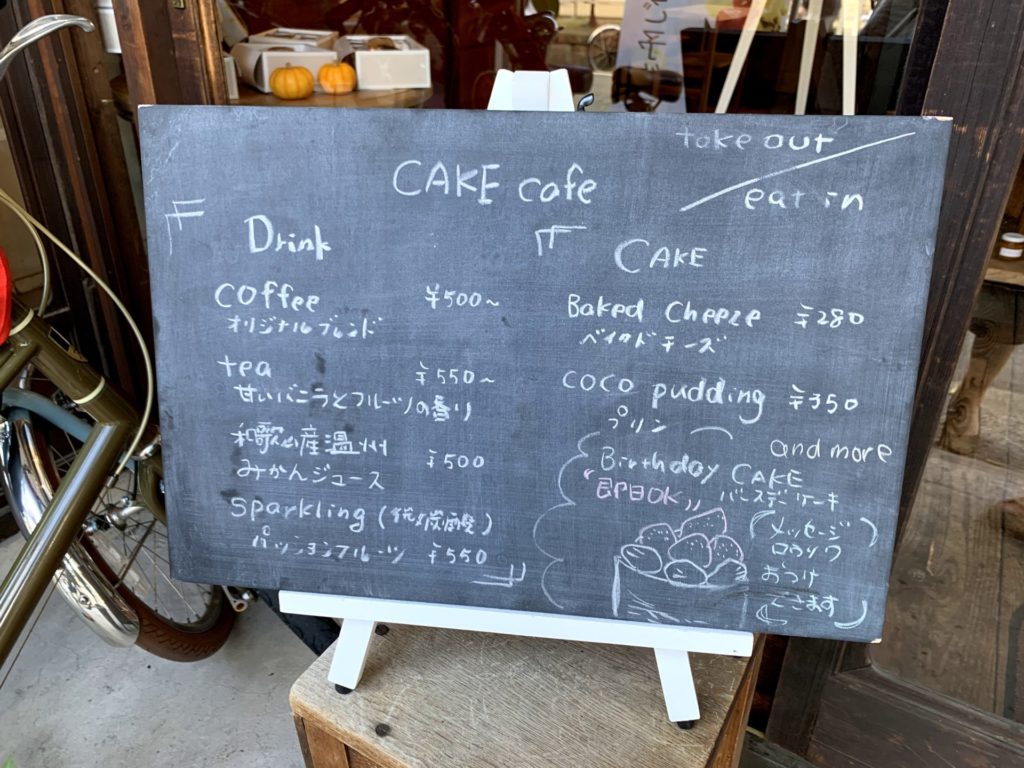 take out
eat in
CAKE cafe
Drink
coffee ¥500~
オリジナルブレンド
tea ¥550~
甘いバニラとフルーツの香り
和歌山産温州 ¥500
みかんジュース
Sparkling
パッションフルーツ ¥550
CAKE
Baked Cheeze ¥280
ベイクドチーズ
coco pudding ¥350
プリン
and more
Birthday CAKE
バースデーケーキ
"即日OK"
メッセージ
ロウソク
おつけ
できます